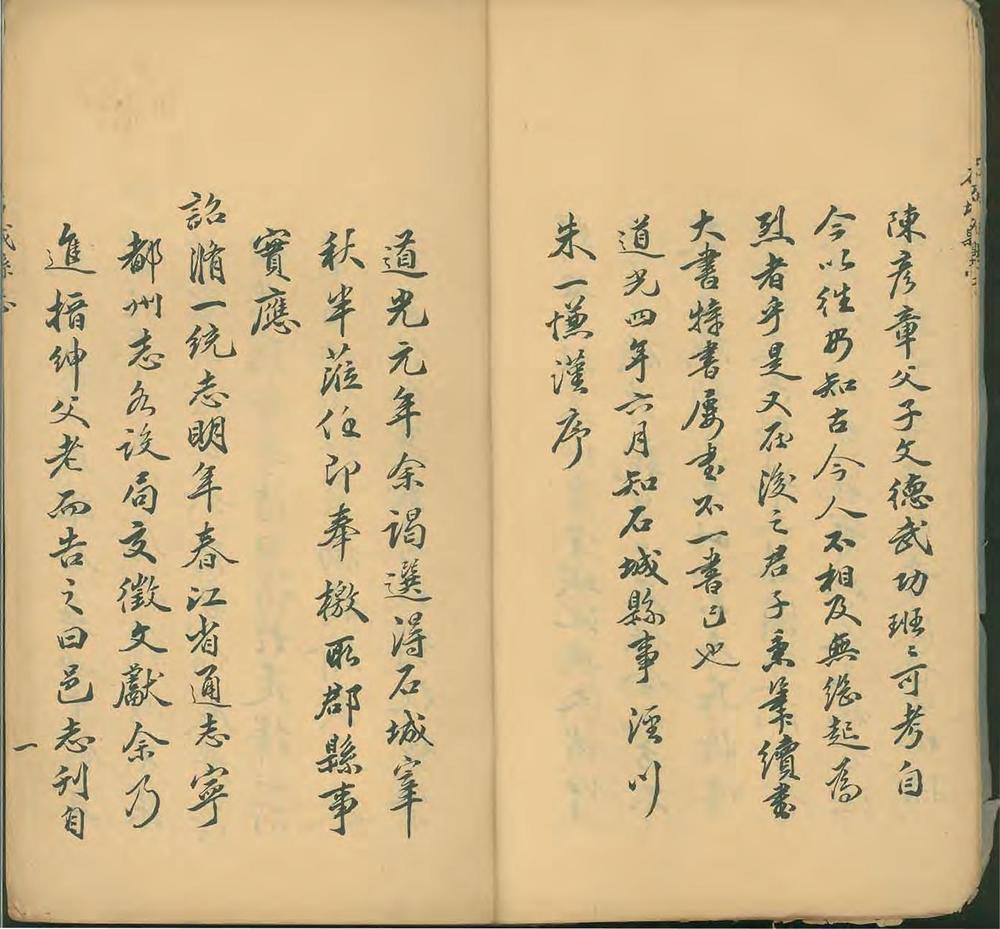 陳彥章父子文德武功班〻可考自
今以往毋知古今人不相及無繼起為
烈者乎是又在後之君子秉筆續書
大書特書屢書不一書已也
道光四年六月知石城縣事涇川
朱一慊謹序
道光元年余謁選得石城宰
秋半蒞任即奉檄取郡縣事
實應
詔脩一統志明年春江省通志寧
都州志各設局交徵文獻余乃
進搢紳父老而告之曰邑志刊自
一